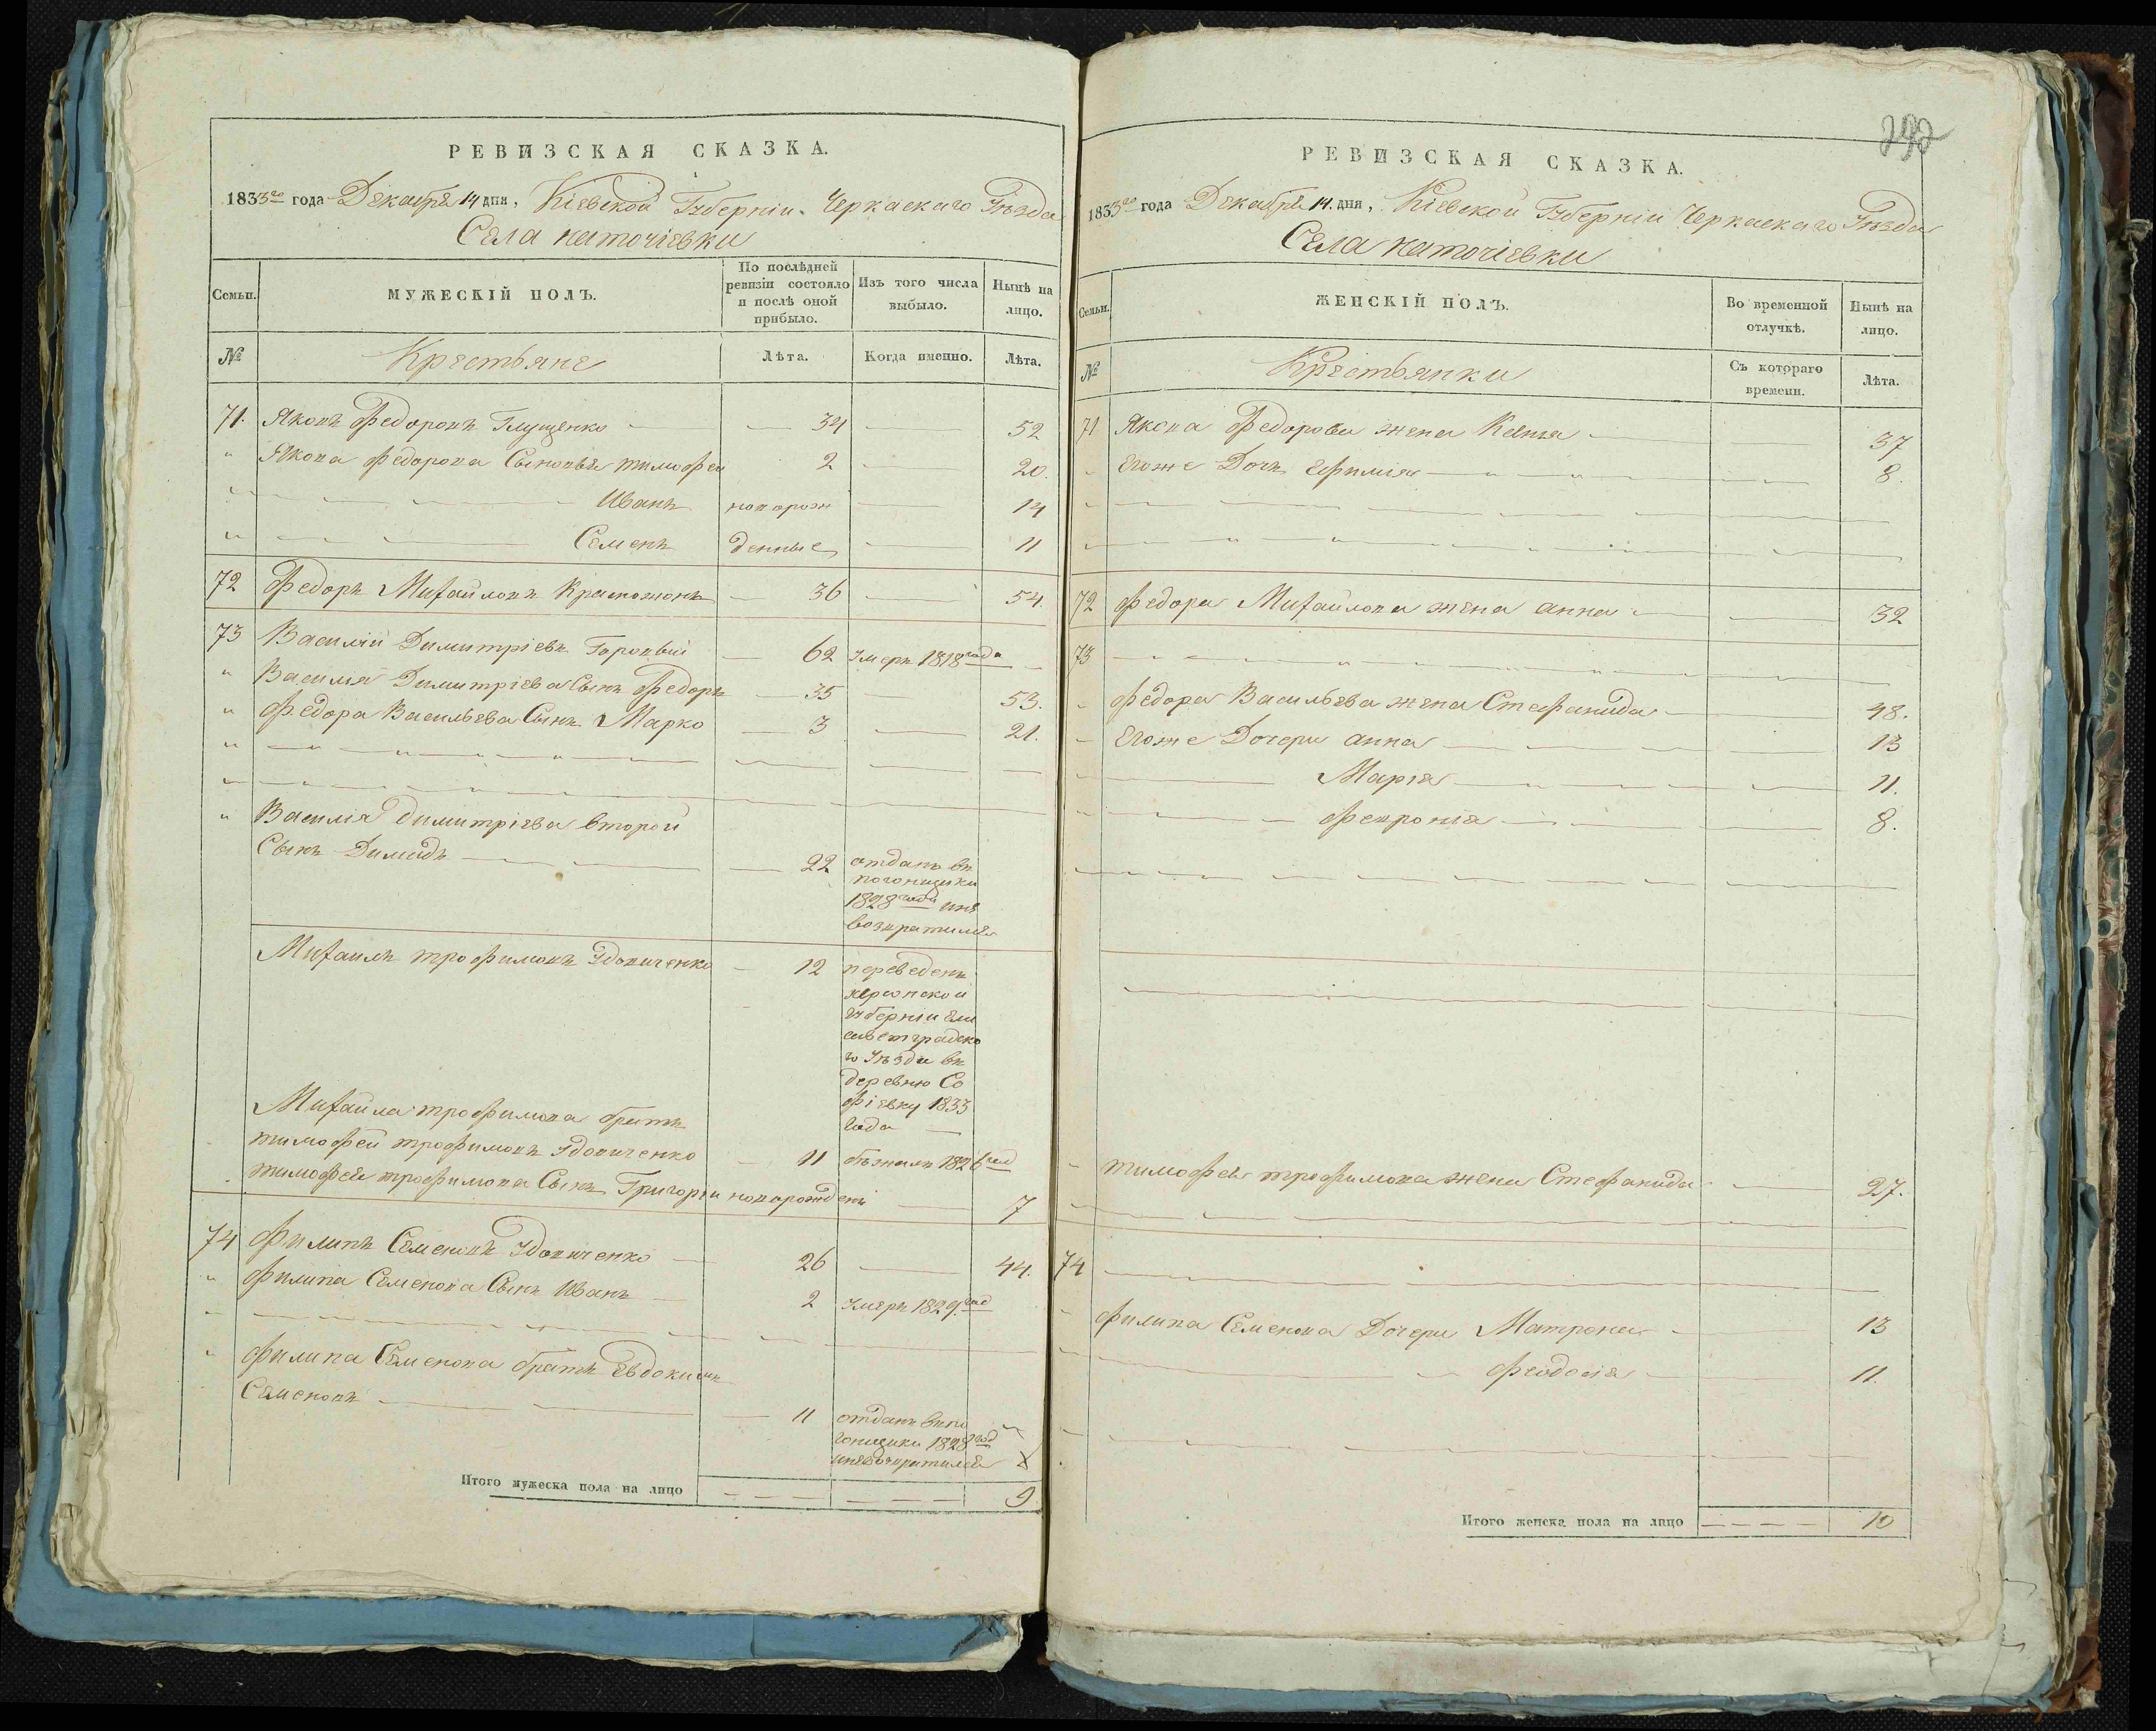 РЕВИЗСКАЯ СКАЗКА.
1833го года Декабря 14 дня, Кіевской Губерніи Черкаскаго Уѣзда
Села
Семьи.
МУЖЕСКІЙ ПОЛЪ.
По послѣдней ревизіи состояло и послѣ оной прибыло.
Изъ того числа выбыло.
Нынѣ на лицо.
№
Крестьяне
Лѣта.
Когда именно.
Лѣта.
71. Яковъ Федоровъ Глущенко 34 52
" Якова Федорова Сыновья тимофей 2 20.
" Иванъ новорож 14
" Семенъ денные 11
72 Федоръ Михайловъ 36 54.
73 Василій Димитріевъ Горовый 62 Умеръ 1818 года
" Василія Димитріева Сынъ Федоръ 35 53.
" Федора Васильева Сынъ Марко 3 21.
" Василія Димитріева второй
Сынъ Димидъ 22 отданъ въ
погонщики
1828 года инѣ
возвратился
Михаилъ трофимовъ Удовиченко 12 переведенъ
херсонской
губерніи Ели
саветградско
го Уѣзда въ
деревню Со
фіевку 1833
года
Михайла трофимова братъ
тимофей трофимовъ Удовиченко 11 бѣжалъ 1826 год
тимофея трофимова Сынъ Григорій новорожденъ 7
74 Филипъ Семеновъ Удовиченко 26 44.
" Филипа Семенова Сынъ Иванъ 2 Умеръ 1829. год
" Филипа Семенова братъ Евдокимъ
Семеновъ 11 отданъ впо
гонщики 1828 год
инѣвозвратился
Итого мужеска пола на лицо 9
292
РЕВИЗСКАЯ СКАЗКА.
1833го года Декабря 14. дня, Кіевской Губерніи Черкаскаго Уѣзда
Села
Семьи.
ЖЕНСКІЙ ПОЛЪ.
Во временной отлучкѣ.
Нынѣ на лицо.
№
Крестьянки
Съ котораго времени.
Лѣта.
71 Якова Федорова жена 37
Егоже Дочь Ефимія 8.
72 Федора Михайлова жена анна 32
73
Федора Васильева жена Стефанида 48.
Егоже Дочери анна 13
Марія 11.
Февронія 8.
тимофея трофимова жена Стефанида 27.
74
Филипа Семенова Дочери Матрона 13
Феодосія 11.
Итого женска пола на лицо 10